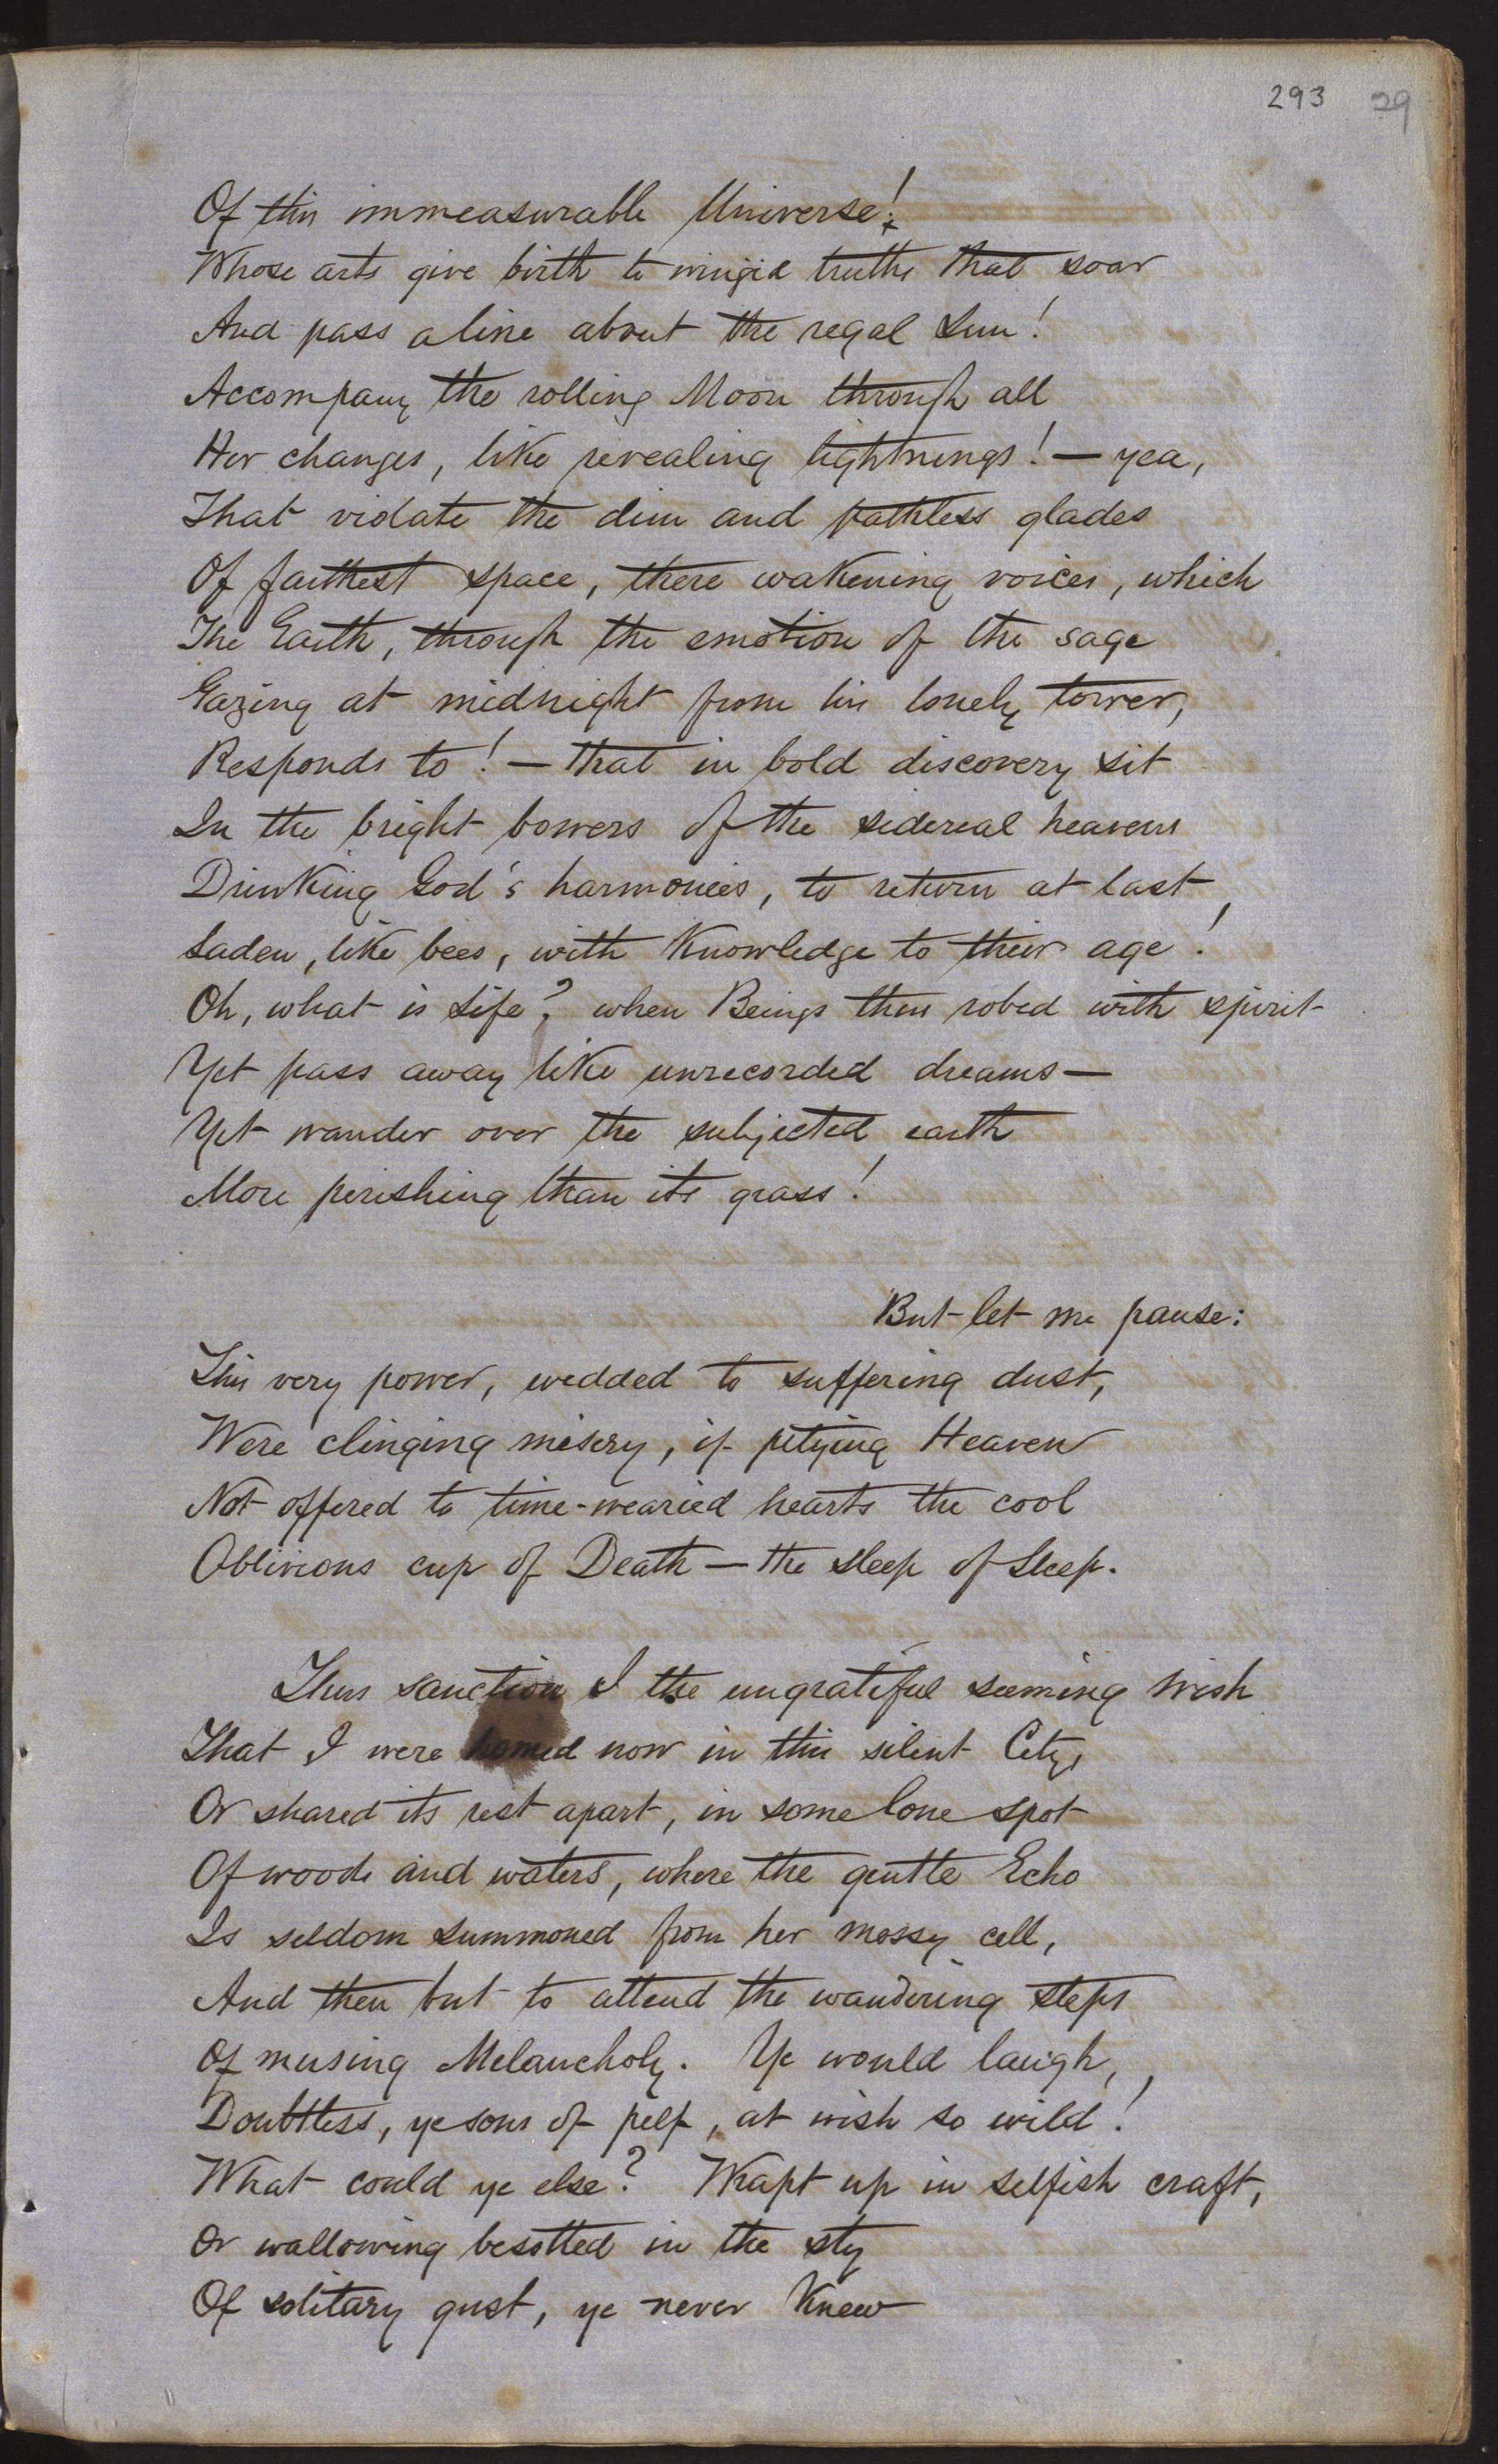 293 29
Of this immeasurable Universe!
Whose arts give birth to wingid truths that soar
And pass a line about the regal Sun!
Accompany the rolling Moon through all
Her changes, like revealing lightnings! — yea,
That violate the dim and pathless glades
Of farthest space, there wakening voices, which
The Earth, through the emotion of the sage
Gazing at midnight from his lonely tower,
Responds to! — that in bold discovery sit
In the bright bowers of the sidereal heavens
Drinking God's harmonies, to return at last,
Laden, like bees, with Knowledge to their age!
Oh, what is Life? when Beings thus robed with spirit
Yet pass away like unrecorded dreams —
Yet wander over the subjected earth
More perishing than its grass!
But let me pause:
This very power, wedded to suffering dust,
Were clinging misery, if pitying Heaven
Not offered to time-wearied hearts the cool
Oblivious cup of Death — the sleep of Sleep.
Thus sanction I the ungrateful seeming wish
That I were homed now in this silent City,
Or shared its rest apart, in some lone spot
Of woods and waters, where the gentle Echo
Is seldom summoned from her mossy cell,
And then but to attend the wandering steps
Of musing Melancholy. Ye would laugh,
Doubtless, ye sons of pelf, at wish so wild!
What could ye else? Wrapt up in selfish craft,
Or wallowing besotted in the sty
Of solitary gust, ye never Knew